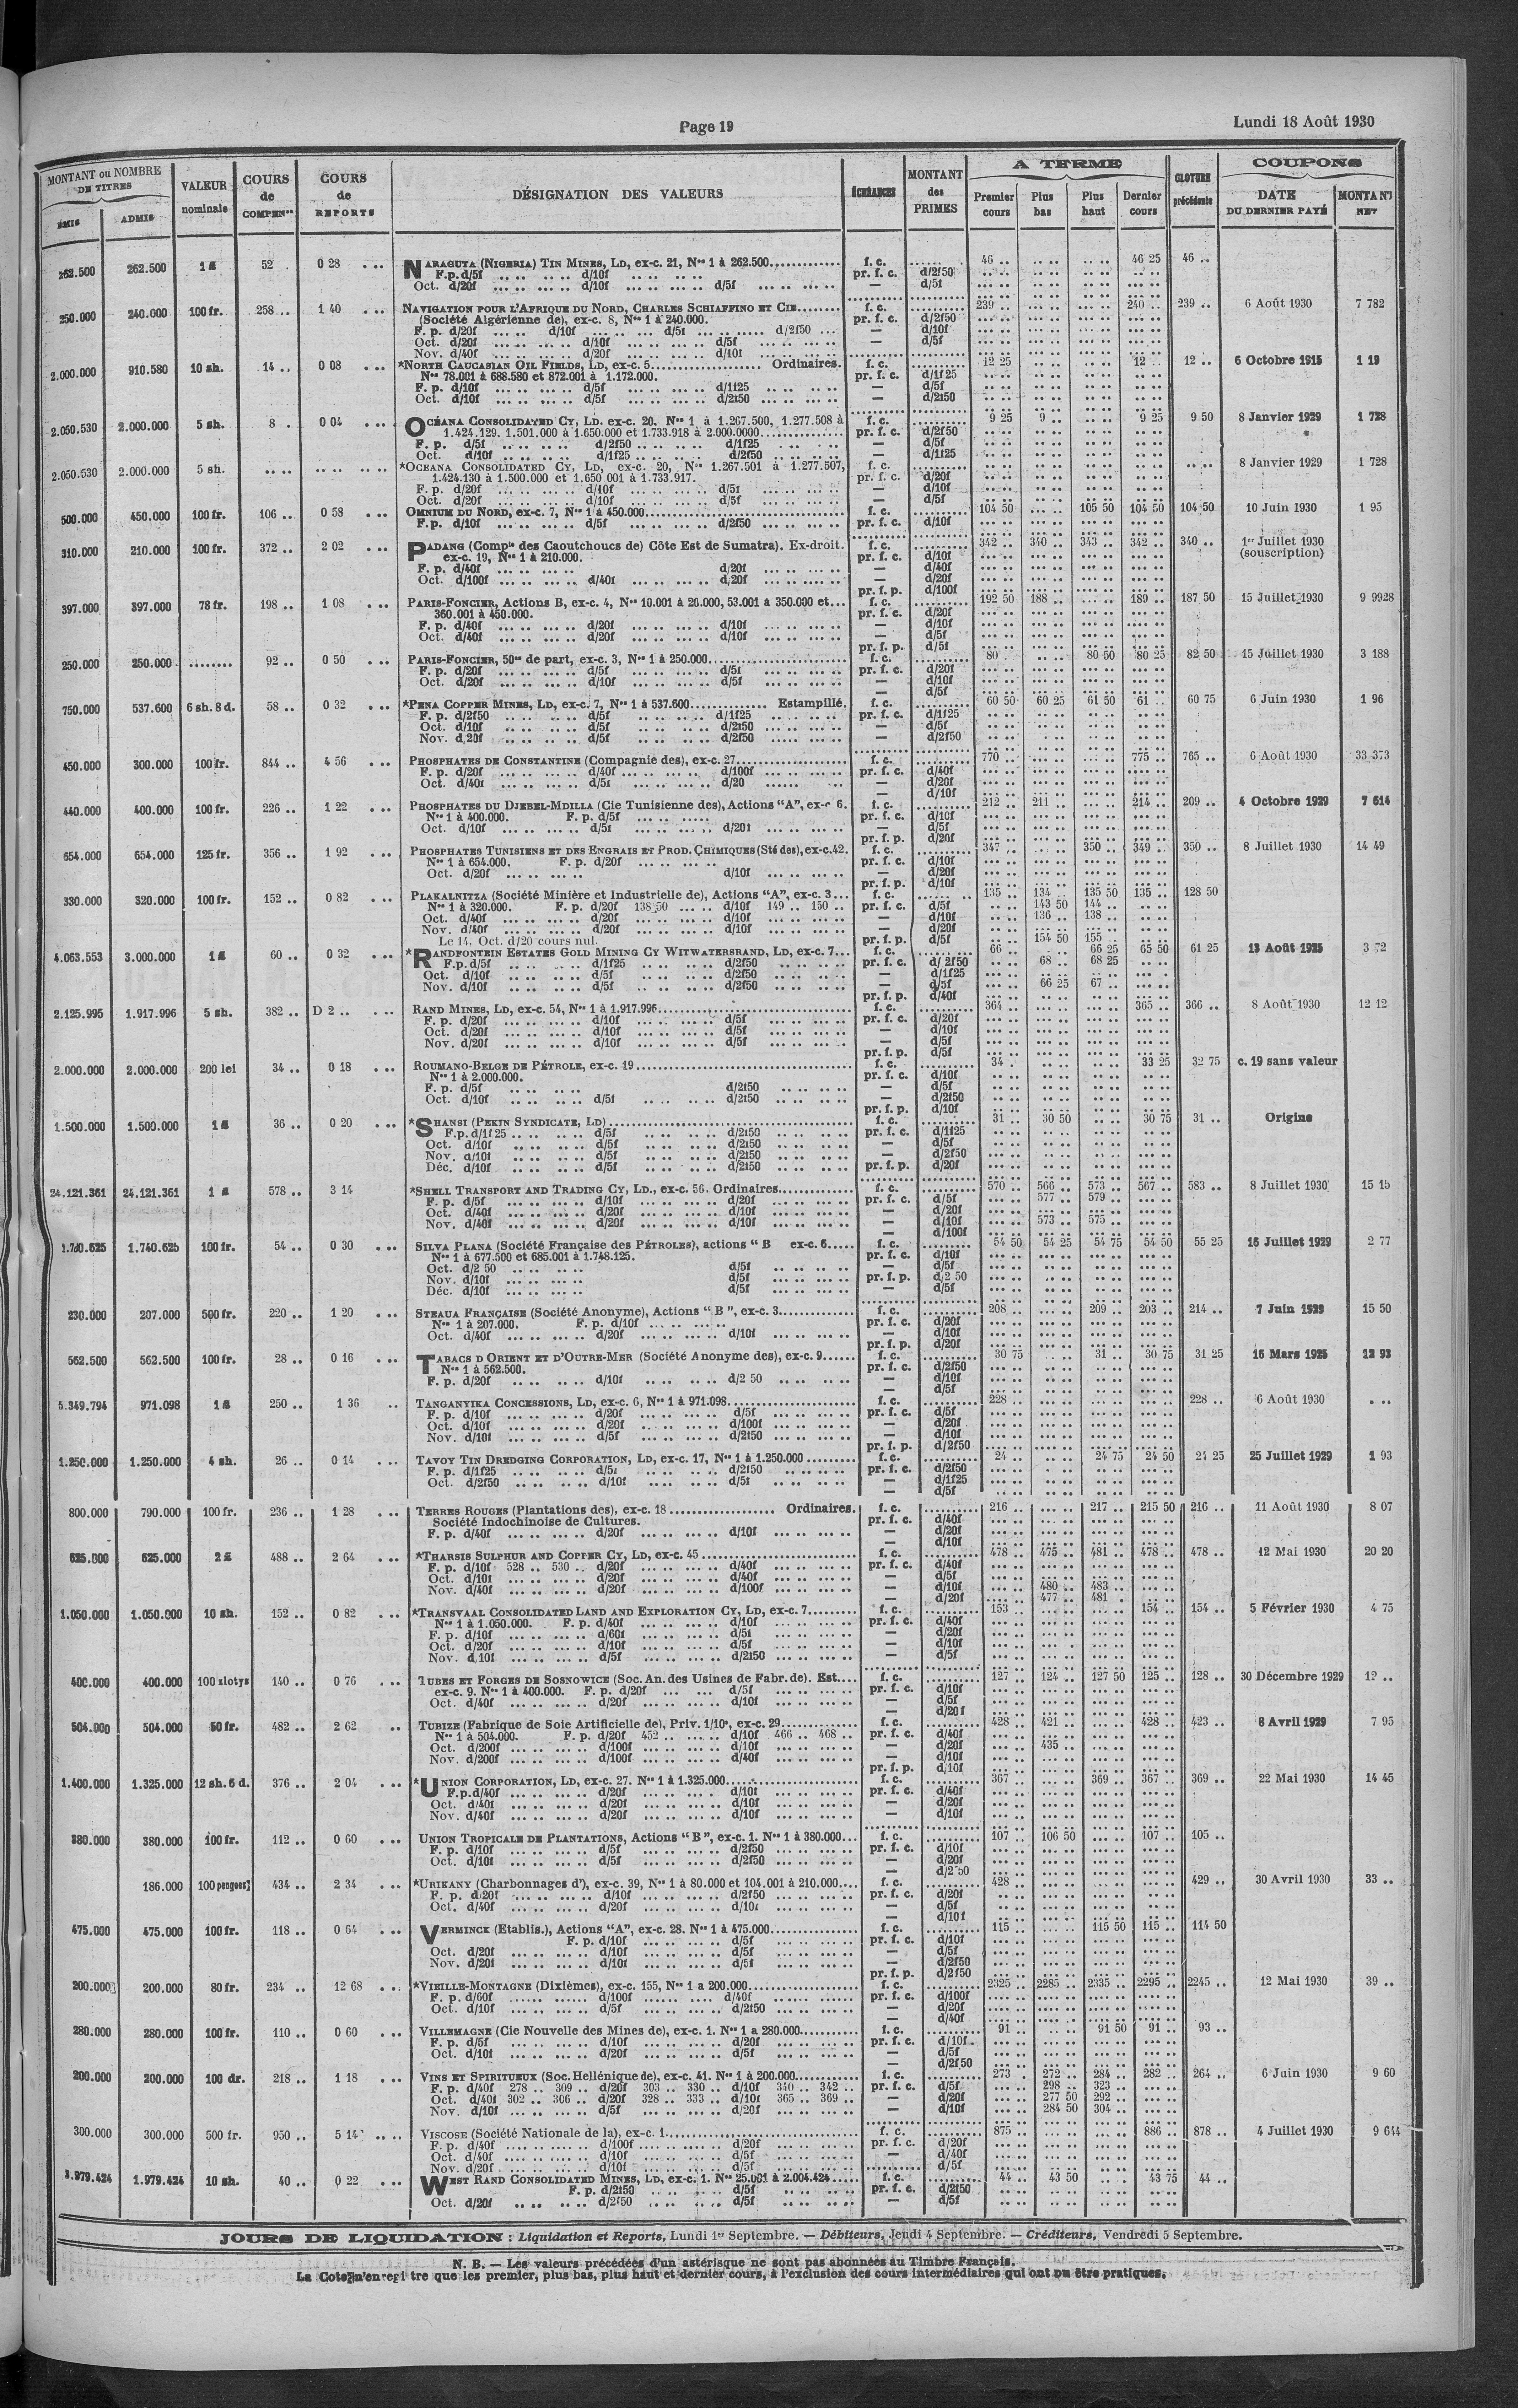 Page 19
Lundi 18 Août 1930
MONTANT ou NOMBRE DE TITRES
ÉMIS ADMIS
VALEUR nominale
COURS de COMPENon
COURS de REPORTS
DÉSIGNATION DES VALEURS
ÉCHÉANCES
MONTANT des PRIMES
A TERME
Premier cours Plus bas Plus haut Dernier cours
CLOTURE précédente
COUPONS
DATE DU DERNIER PAYÉ MONTANT NET
262.500 262.500 1 £ 52 . 0 28 NARAGUTA (NIGERIA) TIN MINES, LD, ex-c. 21, Nos 1 à 262.500 f. c. 46 .. 46 25 46 ..
F.p. d/5f d/10f pr. f. c. d/2f50
Oct. d/20f d/10f d/5f — d/5f
250.000 240.000 100 fr. 258 .. 1 40 NAVIGATION POUR L'AFRIQUE DU NORD, CHARLES SCHIAFFINO ET CIE f. c. 239 .. 240 .. 239 .. 6 Août 1930 7 782
(Société Algérienne de), ex-c. 8, Nos 1 à 240.000. pr. f. c. d/2f50
F. p. d/20f d/10f d/5f d/2f50 — d/10f
Oct. d/20f d/10f d/5f — d/5f
Nov. d/40f d/20f d/10f
2.000.000 910.580 10 sh. 14 .. 0 08 *NORTH CAUCASIAN OIL FIELDS, LD, ex-c. 5 Ordinaires. f. c. 12 25 12 .. 12 .. 6 Octobre 1915 1 19
Nos 78.001 à 688.580 et 872.001 à 1.172.000. pr. f. c. d/1f25
F. p. d/10f d/5f d/1f25 — d/5f
Oct. d/10f d/5f d/2f50 — d/2f50
2.050.530 2.000.000 5 sh. 8 . 0 04 OCÉANA CONSOLIDATED CY, LD. ex-c. 20. Nos 1 à 1.267.500, 1.277.508 à f. c. 9 25 9 .. 9 25 9 50 8 Janvier 1929 1 728
1.424.129. 1.501.000 à 1.650.000 et 1.733.918 à 2.000.0000 pr. f. c. d/2f50
F. p. d/5f d/2f50 d/1f25 — d/5f
Oct. d/10f d/1f25 d/2f50 — d/1f25
2.050.530 2.000.000 5 sh. *OCEANA CONSOLIDATED CY, LD, ex-c. 20, Nos 1.267.501 à 1.277.507, f. c. 8 Janvier 1929 1 728
1.424.130 à 1.500.000 et 1.650 001 à 1.733.917. pr. f. c. d/20f
F. p. d/20f d/10f d/5f — d/10f
Oct. d/20f d/10f d/5f — d/5f
500.000 450.000 100 fr. 106 .. 0 58 OMNIUM DU NORD, ex-c. 7, Nos 1 à 450.000 f. c. 104 50 105 50 104 50 104 50 10 Juin 1930 1 95
F. p. d/10f d/5f d/2f50 pr. f. c. d/10f
310.000 210.000 100 fr. 372 .. 2 02 PADANG (Compie des Caoutchoucs de) Côte Est de Sumatra). Ex-droit. f. c. 342 .. 340 .. 343 .. 342 .. 340 .. 1er Juillet 1930
ex-c. 19, Nos 1 à 210.000. pr. f. c. d/10f (souscription)
F. p. d/40f d/20f — d/40f
Oct. d/100f d/40f d/20f — d/20f
pr. f. p. d/100f
397.000 397.000 78 fr. 198 .. 1 08 PARIS-FONCIER, Actions B, ex-c. 4, Nos 10.001 à 20.000, 53.001 à 350.000 et f. c. 192 50 188 .. 189 .. 187 50 15 Juillet 1930 9 9928
360.001 à 450.000. pr. f. c. d/20f
F. p. d/40f d/20f d/10f — d/10f
Oct. d/40f d/20f d/10f — d/5f
pr. f. p. d/5f
250.000 250.000 92 .. 0 50 PARIS-FONCIER, 50es de part, ex-c. 3, Nos 1 à 250.000 f. c. 80 . 80 50 80 25 82 50 15 Juillet 1930 3 188
F. p. d/20f d/5f d/5f pr. f. c. d/20f
Oct. d/20f d/10f d/5f — d/10f
— d/5f
750.000 537.600 6 sh. 8 d. 58 .. 0 32 *PENA COPPER MINES, LD, ex-c. 7, Nos 1 à 537.600 Estampillé. f. c. 60 50 60 25 61 50 61 .. 60 75 6 Juin 1930 1 96
F. p. d/2f50 d/5f d/1f25 pr. f. c. d/1f25
Oct. d/10f d/5f d/2f50 — d/5f
Nov. d/20f d/5f d/2f50 — d/2f50
450.000 300.000 100 fr. 844 .. 4 56 PHOSPHATES DE CONSTANTINE (Compagnie des), ex-c. 27 f. c. 770 .. 775 .. 765 .. 6 Août 1930 33 373
F. p. d/20f d/40f d/100f pr. f. c. d/40f
Oct. d/40f d/5f d/20 — d/20f
— d/10f
440.000 400.000 100 fr. 226 .. 1 22 PHOSPHATES DU DJEBEL-MDILLA (Cie Tunisienne des), Actions "A", ex-c 6. f. c. 212 .. 211 .. 214 .. 209 .. 4 Octobre 1929 7 614
Nos 1 à 400.000. F. p. d/5f pr. f. c. d/10f
Oct. d/10f d/5f d/20f — d/5f
pr. f. p. d/20f
654.000 654.000 125 fr. 356 .. 1 92 PHOSPHATES TUNISIENS ET DES ENGRAIS ET PROD. CHIMIQUES (Sté des), ex-c. 42. f. c. 347 .. 350 .. 349 .. 350 .. 8 Juillet 1930 14 49
Nos 1 à 654.000. F. p. d/20f pr. f. c. d/10f
Oct. d/20f d/10f — d/20f
pr. f. p. d/10f
330.000 320.000 100 fr. 152 .. 0 82 PLAKALNITZA (Société Minière et Industrielle de), Actions "A", ex-c. 3 f. c. 135 .. 134 .. 135 50 135 .. 128 50
Nos 1 à 320.000. F. p. d/20f 138 50 d/10f 149 .. 150 .. pr. f. c. d/5f 143 50 144 ..
Oct. d/40f d/20f d/10f — d/10f 136 .. 138 ..
Nov. d/40f d/20f d/10f — d/20f
Le 14. Oct. d/20 cours nul. pr. f. p. d/5f 154 50 155 ..
4.063.553 3.000.000 1 £ 60 .. 0 32 *RANDFONTEIN ESTATES GOLD MINING CY WITWATERSRAND, LD, ex-c. 7 f. c. 66 .. 66 25 65 50 61 25 13 Août 1925 3 72
F.p. d/5f d/1f25 d/2f50 pr. f. c. d/2f50 68 .. 68 25
Oct. d/10f d/5f d/2f50 — d/1f25
Nov. d/10f d/5f d/2f50 — d/5f 66 25 67 ..
pr. f. p. d/40f
2.125.995 1.917.996 5 sh. 382 .. D 2 .. RAND MINES, LD, ex-c. 54, Nos 1 à 1.917.996 f. c. 364 .. 365 .. 366 .. 8 Août 1930 12 12
F. p. d/20f d/10f d/5f pr. f. c. d/20f
Oct. d/20f d/10f d/5f — d/10f
Nov. d/20f d/10f d/5f — d/5f
pr. f. p. d/5f
2.000.000 2.000.000 200 lei 34 .. 0 18 ROUMANO-BELGE DE PÉTROLE, ex-c. 19 f. c. 34 . 33 25 32 75 c. 19 sans valeur
Nos 1 à 2.000.000. pr. f. c. d/10f
F. p. d/5f d/2f50 — d/5f
Oct. d/10f d/5f d/2f50 — d/2f50
pr. f. p. d/10f
1.500.000 1.500.000 1 £ 36 .. 0 20 *SHANSI (PEKIN SYNDICATE, LD) f. c. 31 .. 30 50 30 75 31 .. Origine
F.p. d/1f25 d/5f d/2f50 pr. f. c. d/1f25
Oct. d/10f d/5f d/2f50 — d/5f
Nov. d/10f d/5f d/2f50 — d/2f50
Déc. d/10f d/5f d/2f50 pr. f. p. d/20f
24.121.361 24.121.361 1 £ 578 .. 3 14 *SHELL TRANSPORT AND TRADING CY, LD., ex-c. 56. Ordinaires f. c. 570 .. 566 .. 573 .. 567 .. 583 .. 8 Juillet 1930 15 15
F. p. d/5f d/10f d/20f pr. f. c. d/5f 577 .. 579 ..
Oct. d/40f d/20f d/10f — d/20f
Nov. d/40f d/20f d/10f — d/10f 573 .. 575 ..
— d/100f
1.740.625 1.740.625 100 fr. 54 .. 0 30 SILVA PLANA (Société Française des PÉTROLES), actions " B ex-c. 6 f. c. 54 50 54 25 54 75 54 50 55 25 16 Juillet 1929 2 77
Nos 1 à 677.500 et 685.001 à 1.748.125. pr. f. c. d/10f
Oct. d/2 50 d/5f — d/5f
Nov. d/10f d/5f pr. f. p. d/2 50
Déc. d/10f d/5f — d/5f
230.000 207.000 500 fr. 220 .. 1 20 STEAUA FRANÇAISE (Société Anonyme), Actions " B ", ex-c. 3 f. c. 208 .. 209 .. 203 .. 214 .. 7 Juin 1929 15 50
Nos 1 à 207.000. F. p. d/10f pr. f. c. d/20f
Oct. d/40f d/20f d/10f — d/10f
pr. f. p. d/20f
562.500 562.500 100 fr. 28 .. 0 16 TABACS D ORIENT ET D'OUTRE-MER (Société Anonyme des), ex-c. 9 f. c. 30 75 31 .. 30 75 31 25 16 Mars 1925 12 93
Nos 1 à 562.500. pr. f. c. d/2f50
F. p. d/20f d/10f d/2 50 — d/10f
— d/5f
5.349.794 971.098 1 £ 250 .. 1 36 TANGANYIKA CONCESSIONS, LD, ex-c. 6, Nos 1 à 971.098 f. c. 228 .. 228 .. 6 Août 1930
F. p. d/10f d/20f d/5f pr. f. c. d/5f
Oct. d/10f d/20f d/100f — d/20f
Nov. d/10f d/5f d/2f50 — d/10f
pr. f. p. d/2f50
1.250.000 1.250.000 4 sh. 26 .. 0 14 TAVOY TIN DREDGING CORPORATION, LD, ex-c. 17, Nos 1 à 1.250.000 f. c. 24 .. 24 75 24 50 24 25 25 Juillet 1929 1 93
F. p. d/1f25 d/5f d/2f50 pr. f. c. d/2f50
Oct. d/2f50 d/10f d/5f — d/1f25
— d/5f
800.000 790.000 100 fr. 236 .. 1 28 TERRES ROUGES (Plantations des), ex-c. 18 Ordinaires. f. c. 216 .. 217 .. 215 50 216 .. 11 Août 1930 8 07
Société Indochinoise de Cultures. pr. f. c. d/40f
F. p. d/40f d/20f d/10f — d/20f
— d/10f
625.000 625.000 2 £ 488 .. 2 64 *THARSIS SULPHUR AND COPPER CY, LD, ex-c. 45 f. c. 478 .. 475 .. 481 .. 478 .. 478 .. 12 Mai 1930 20 20
F. p. d/10f 528 .. 530 .. d/20f d/40f pr. f. c. d/40f
Oct. d/10f d/20f d/40f — d/5f
Nov. d/40f d/20f d/100f — d/10f 480 .. 483 ..
— d/20f 477 .. 481 .
1.050.000 1.050.000 10 sh. 152 .. 0 82 *TRANSVAAL CONSOLIDATED LAND AND EXPLORATION CY, LD, ex-c. 7 f. c. 153 .. 154 .. 154 .. 5 Février 1930 4 75
Nos 1 à 1.050.000. F. p. d/40f d/10f pr. f. c. d/40f
F. p. d/10f d/60f d/5f — d/20f
Oct. d/20f d/10f d/5f — d/10f
Nov. d.10f d/5f d/2f50 — d/5f
400.000 400.000 100 zlotys 140 .. 0 76 TUBES ET FORGES DE SOSNOWICE (Soc. An. des Usines de Fabr. de). Est. f. c. 127 .. 124 .. 127 50 125 .. 128 .. 30 Décembre 1929
ex-c. 9. Nos 1 à 400.000. F. p. d/20f d/5f pr. f. c. d/10f
Oct. d/40f d/20f d/10f — d/5f
— d/20f
504.000 504.000 50 fr. 482 .. 2 62 TUBIZE (Fabrique de Soie Artificielle de), Priv. 1/10e, ex-c. 29 f. c. 428 .. 421 .. 428 .. 423 .. 8 Avril 1929 7 95
Nos 1 à 504.000. F. p. d/20f 452 .. d/10f 466 .. 468 .. pr. f. c. d/40f
Oct. d/200f d/100f d/10f — d/20f 435 ..
Nov. d/200f d/100f d/40f — d/10f
pr. f. p. d/10f
1.400.000 1.325.000 12 sh. 6 d. 376 .. 2 04 *UNION CORPORATION, LD, ex-c. 27. Nos 1 à 1.325.000 f. c. 367 .. 369 .. 367 .. 369 .. 22 Mai 1930 14 45
F.p. d/40f d/20f d/10f pr. f. c. d/40f
Oct. d/40f d/20f d/10f — d/20f
Nov. d/40f d/20f d/10f — d/10f
380.000 380.000 100 fr. 112 .. 0 60 UNION TROPICALE DE PLANTATIONS, Actions " B ", ex-c. 1. Nos 1 à 380.000 f. c. 107 .. 106 50 107 .. 105 ..
F. p. d/10f d/5f d/2f50 pr. f. c. d/10f
Oct. d/10f d/5f d/2f50 — d/20f
— d/2f50
186.000 100 pengues 434 .. 2 34 *URIKANY (Charbonnages d'), ex-c. 39, Nos 1 à 80.000 et 104.001 à 210.000 f. c. 428 .. 429 .. 30 Avril 1930 33 ..
F. p. d/20f d/10f d/2f50 pr. f. c. d/20f
Oct. d/40f d/20f d/10f — d/5f
— d/10f
475.000 475.000 100 fr. 118 .. 0 64 VERMINCK (Etablis.), Actions "A", ex-c. 28. Nos 1 à 475.000 f. c. 115 .. 115 50 115 .. 114 50
F. p. d/10f d/5f pr. f. c. d/10f
Oct. d/20f d/10f d/5f — d/5f
Nov. d/20f d/10f d/5f — d/2f50
pr. f. p. d/2f50
200.000 200.000 80 fr. 234 .. 12 68 *VIEILLE-MONTAGNE (Dixièmes), ex-c. 155, Nos 1 a 200.000 f. c. 2325 .. 2285 .. 2335 .. 2295 .. 2245 .. 12 Mai 1930 39 ..
F. p. d/60f d/100f d/40f pr. f. c. d/100f
Oct. d/10f d/5f d/2f50 — d/20f
— d/40f
280.000 280.000 100 fr. 110 .. 0 60 VILLEMAGNE (Cie Nouvelle des Mines de), ex-c. 1. Nos 1 a 280.000 f. c. 91 .. 91 50 91 .. 93 ..
F. p. d/5f d/10f d/20f pr. f. c. d/10f
Oct. d/10f d/20f d/5f — d/5f
— d/2f50
200.000 200.000 100 dr. 218 .. 1 18 VINS ET SPIRITUEUX (Soc. Hellénique de), ex-c. 41. Nos 1 à 200.000 f. c. 273 . 272 .. 284 .. 282 .. 264 .. 6 Juin 1930 9 60
F. p. d/40f 278 .. 309 .. d/20f 303 .. 330 .. d/10f 340 .. 342 .. pr. f. c. d/5f 298 .. 323 ..
Oct. d/40f 302 .. 306 .. d/20f 328 .. 333 .. d/10f 365 .. 369 .. — d/20f 277 50 292 ..
Nov. d/10f d/5f d/20f — d/10f 284 50 304 ..
300.000 300.000 500 fr. 950 .. 5 14 VISCOSE (Société Nationale de la), ex-c. 1 f. c. 875 .. 886 .. 878 .. 4 Juillet 1930 9 644
F. p. d/40f d/100f d/20f pr. f. c. d/20f
Oct. d/40f d/10f d/5f — d/40f
Nov. d/20f d/10f d/5f d/5f
3.979.424 1.979.424 10 sh. 40 .. 0 22 WEST RAND CONSOLIDATED MINES, LD, ex-c. 1. Nos 25.001 à 2.004.424 f. c. 44 .. 43 50 43 75 44 ..
F. p. d/2f50 d/5f pr. f. c. d/2f50
Oct. d/20f d/2f50 d/5f — d/5f
JOURS DE LIQUIDATION : Liquidation et Reports, Lundi 1er Septembre. — Débiteurs, Jeudi 4 Septembre. — Créditeurs, Vendredi 5 Septembre.
N. B. — Les valeurs précédées d'un astérisque ne sont pas abonnées au Timbre Français.
La Cote n'enregi tre que les premier, plus bas, plus haut et dernier cours, à l'exclusion des cours intermédiaires qui ont pu être pratiqués.